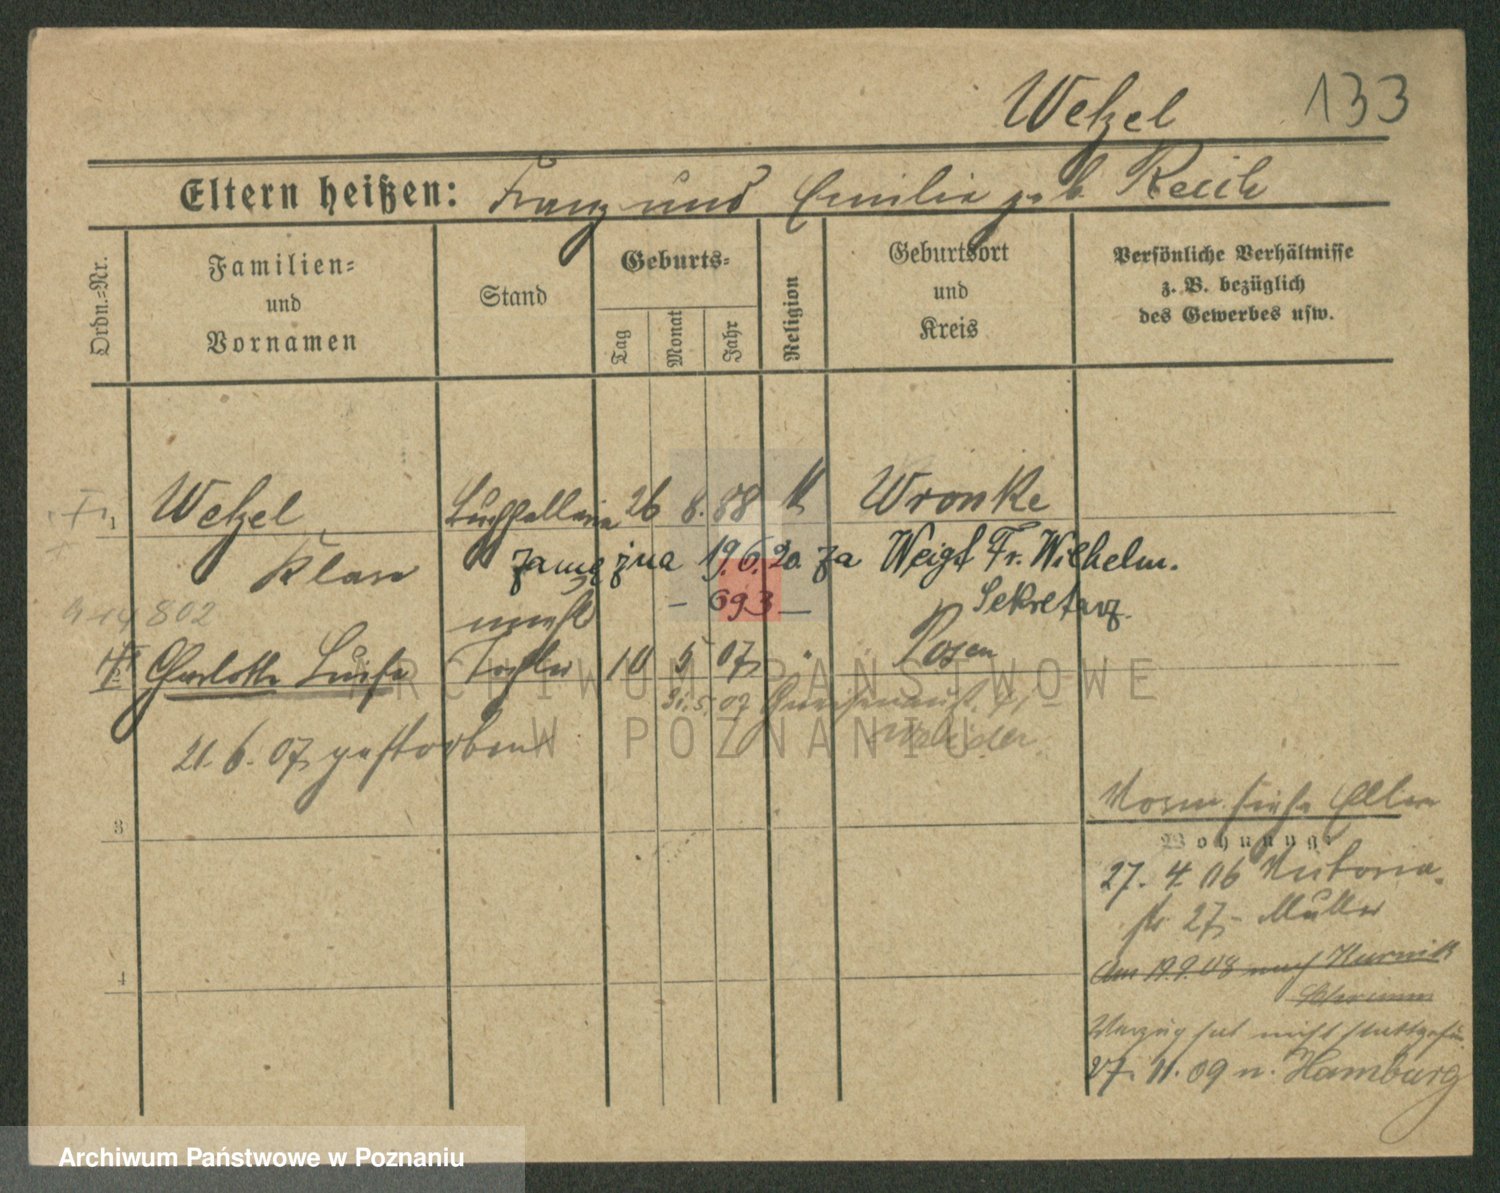 Wetzel 133
Eltern heißen: Franz und Emilie geb. Reich
Ordn.=Nr.
Familien=
und
Vornamen
Stand
Geburts=
Tag
Monat
Jahr
Religion
Geburtsort
und
Kreis
Persönliche Verhältnisse
z. B. bezüglich
des Gewerbes usw.
1 Wetzel 26 8. 88 Wronke
Klara zamężna 19.6.20 za Weigt Fr. Wilhelm.
802 – 693 – Sekretarz
Charlotte Luise Tochter 10 5 07 " Posen
31.5.07
21. 6. 07 gestorben
ARCHIWUM PAŃSTWOWE
W POZNANIU
3
siehe Eltern
Wohnung:
27. 4. 06 Viktoria-
str. 27, Müller
Am 19.9.08 nach Kurnik
Schrimm
Verzug hat nicht stattgef.
27. 11. 09 n. Hamburg
4
Archiwum Państwowe w Poznaniu